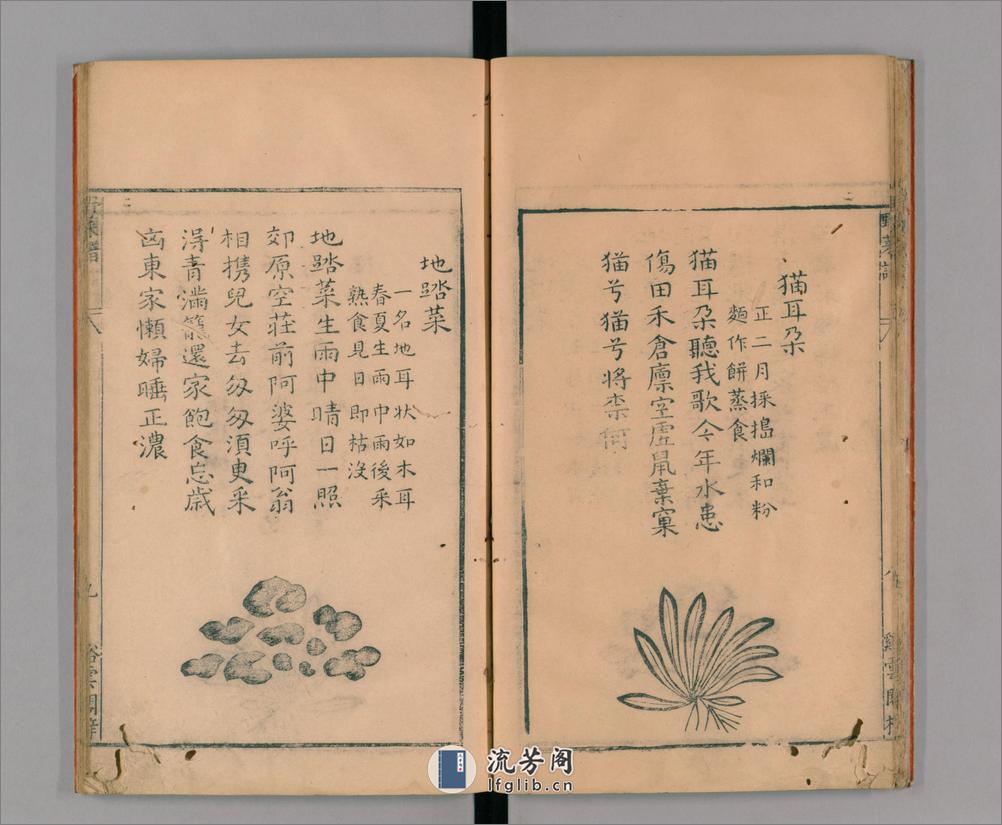 猫耳朵
正二月採搗爛和粉
麵作餅蒸食
猫耳朵聽我歌今年水患
傷田禾倉廩空虛鼠棄窠
猫兮猫兮將柰何
地踏菜
一名地耳状如木耳
春夏生雨中雨後采
熟食見日即枯没
地踏菜生雨中晴日一照
郊原空荘前阿婆呼阿翁
相携兒女去匆匆湏臾采
淂青滿籠還家飽食忘歳
凶東家懶婦睡正濃
流芳阁
lfglib.cn